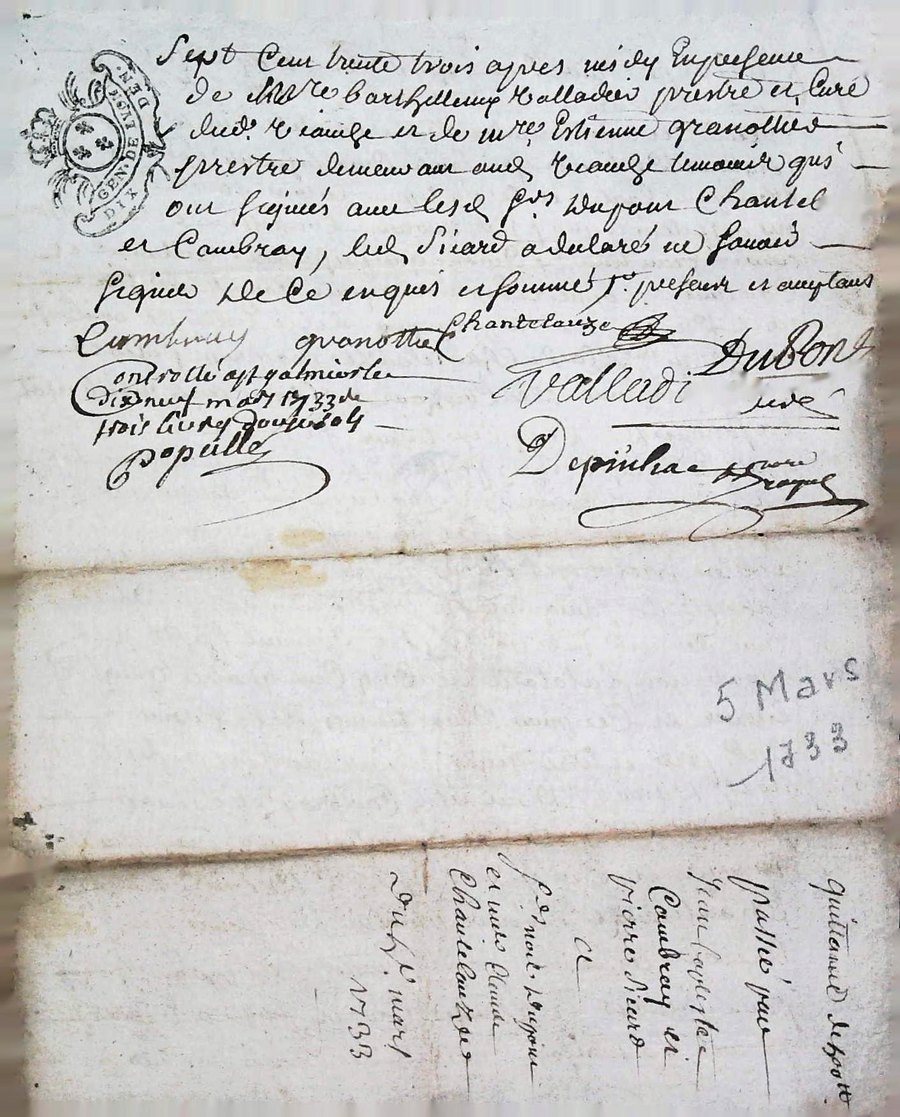 Sept Cent trente trois apres midy En presence
de Mre Barthellemy Valladier prestre et Curé
dud. et de mre Estienne Granottier
prestre demeurant aud témoins qui
ont signés avec lesd Srs Dupont Chantel
et Cambray, led Sicard a declaré ne savoir
signer De Ce enquis et sommé
GEN. DE
DIX
DEN.
Cambray Granottie Chantelauze
Valladi DuPont
curé
Controllé a St galmier le
dix neuf mars 1733 Rt
trois livres douze sols
Populle
Depinhac
5 Mars
1733
quittance de
passé par
Jean baptiste
Cambray et
pierre Sicard
a
Srs noel Dupont
et mre Claude
Chantelauze
Du 5e mars
1733